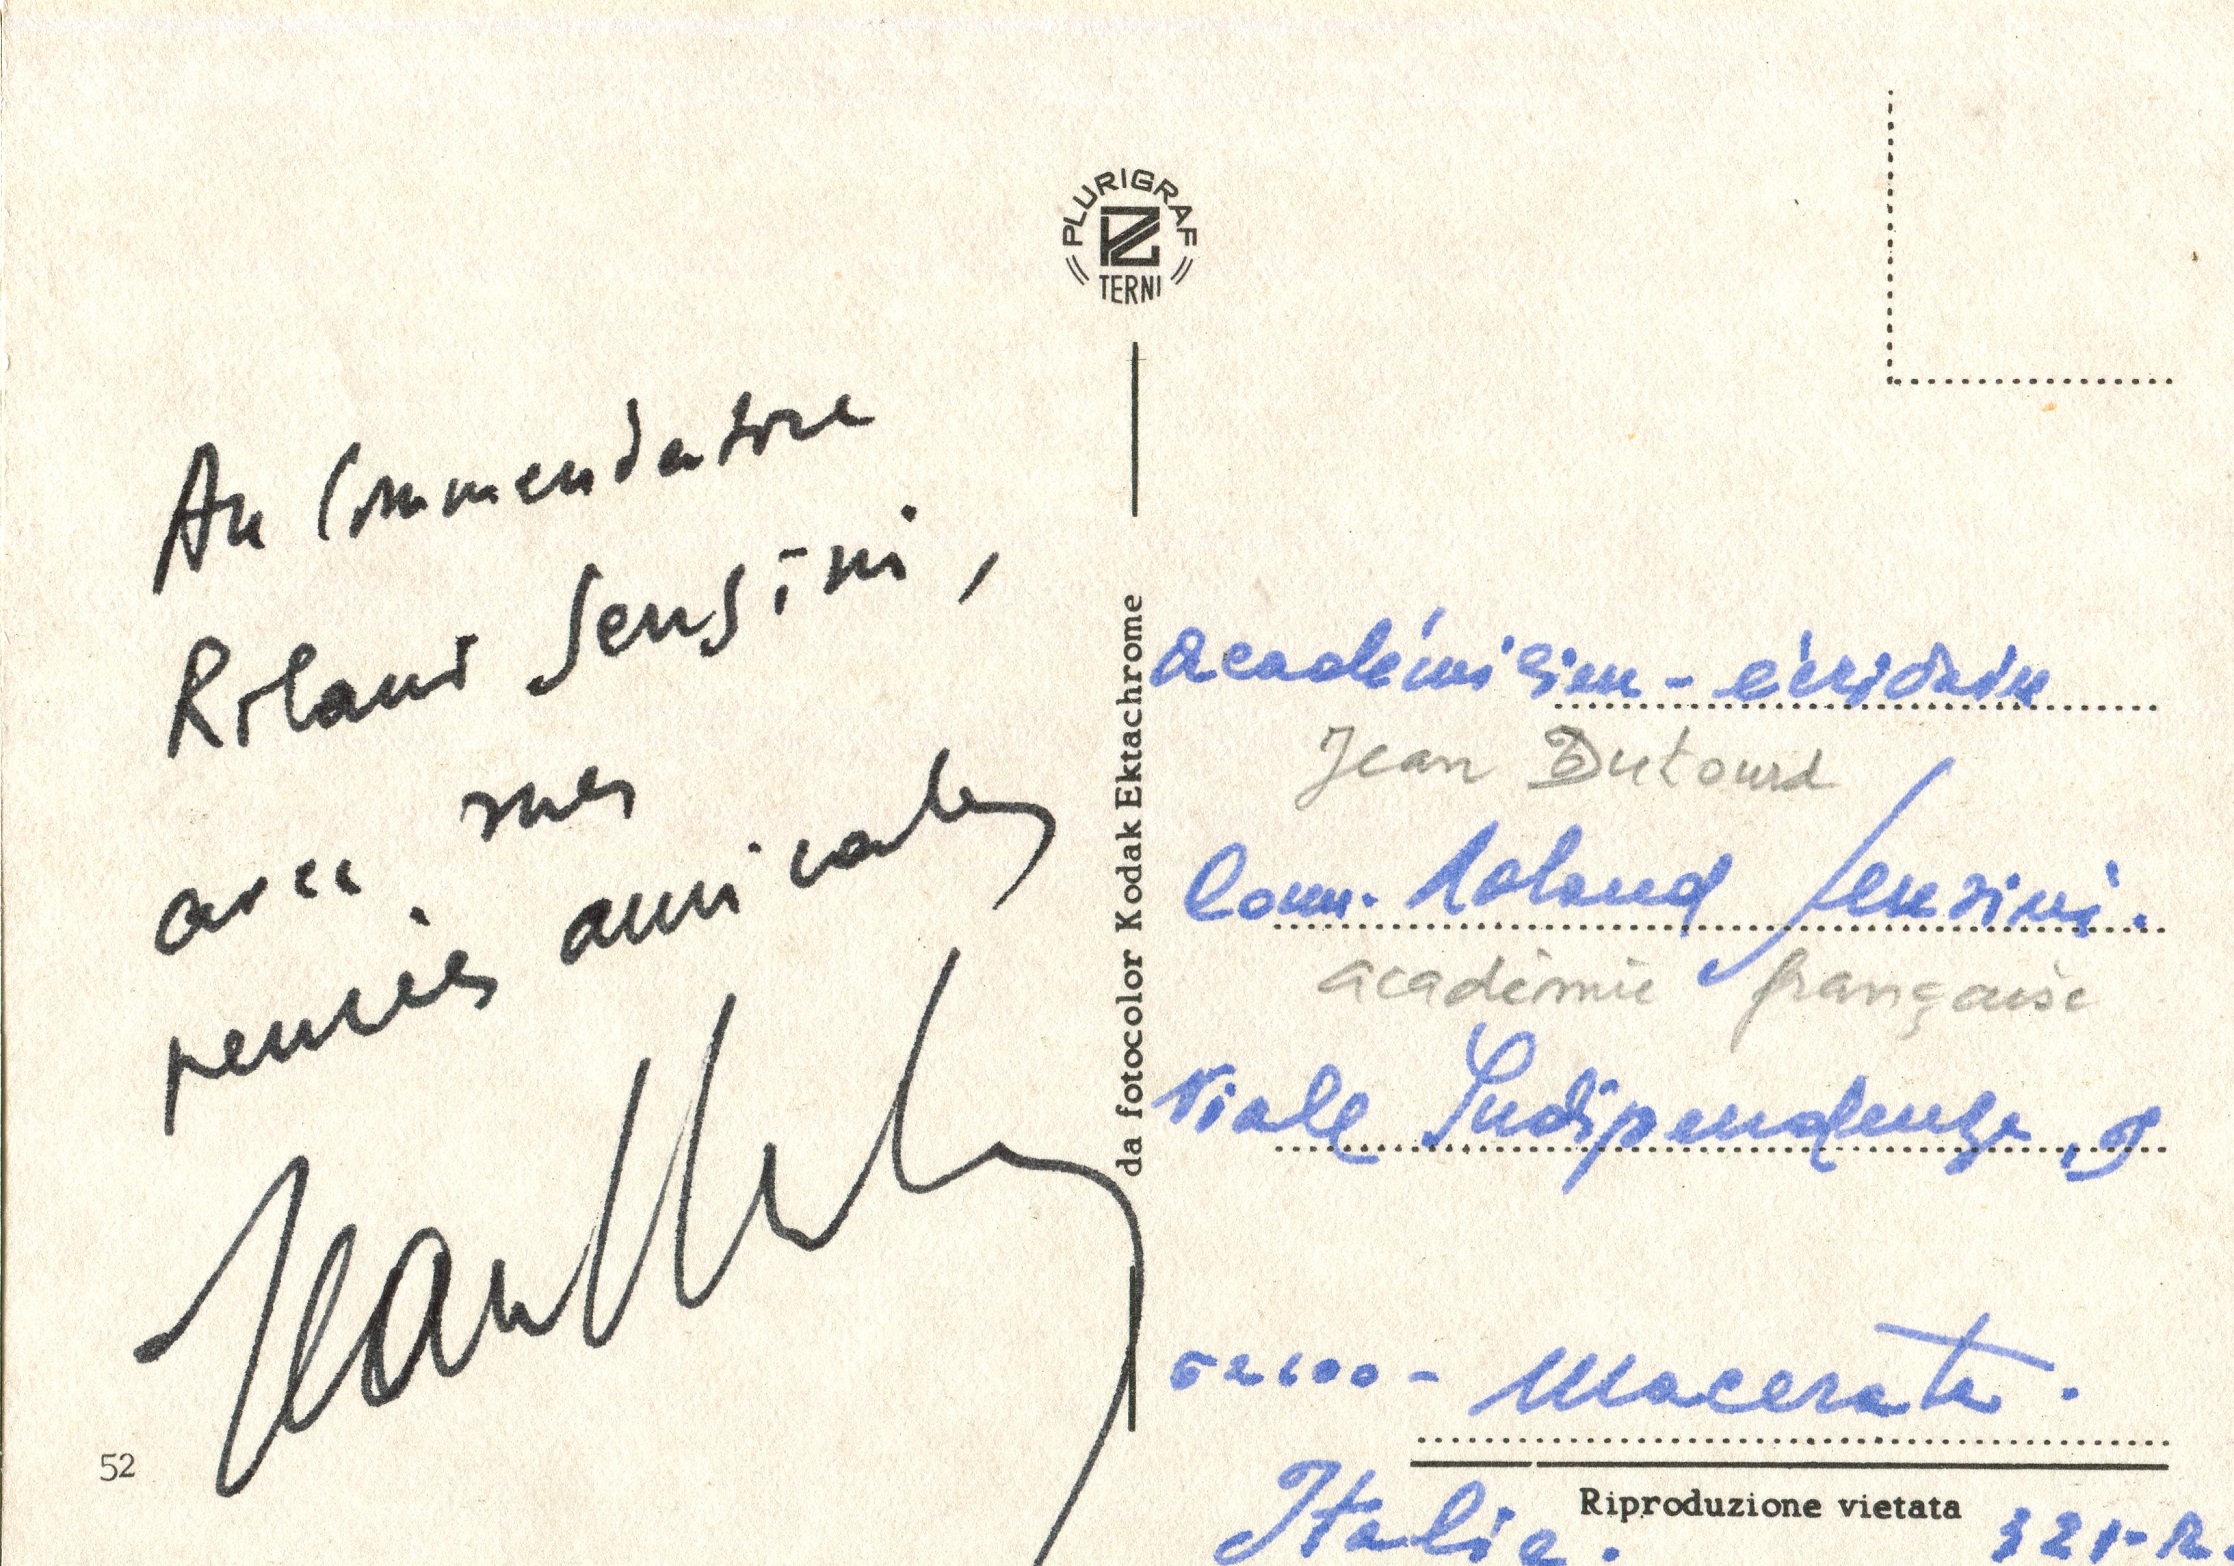 PLURIGRAF
TERNI
Au Commendatore
Roland Sensini,
avec mes
pensées amicales
Jean
52
da fotocolor Kodak Ektachrome
académicien - écrivain
Jean Dutourd
Comm. Roland Sensini.
académie française
Viale Indipendenza,
62100 - Macerata.
Italia.
Riproduzione vietata